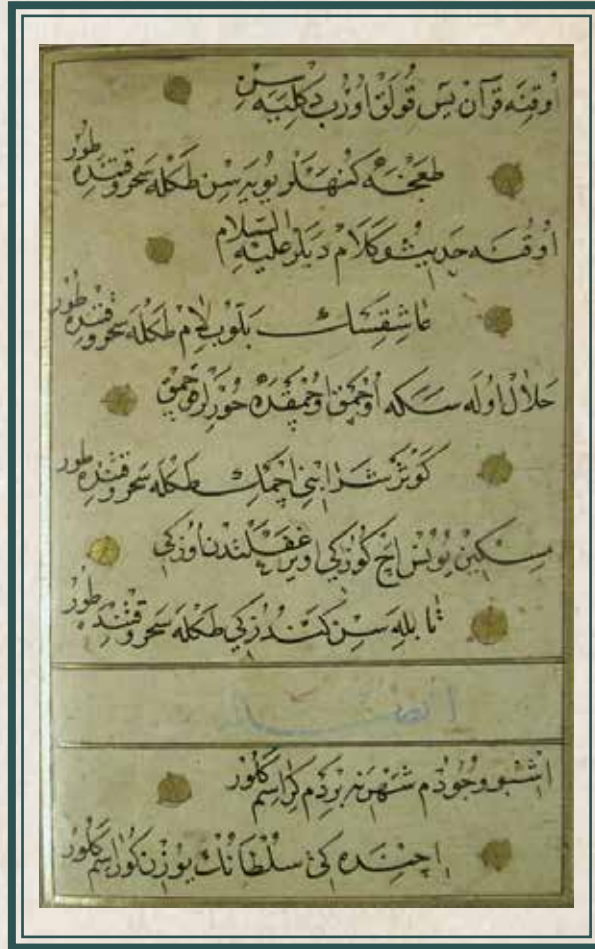 اُوقِنَه قرآن بَس قُولَقْ اُورُبْ دِكْلِيَه سِنْ
طَغْجَه كُنَهْلَر يُويَه سِن طَكْلَه سَحَر وقتنده طور
اُوقُنَه حَدِيثُ وكَلَامْ دِيلَر عليه السلام
عاشِقِسَكْ طَكْلَه سَحَر وقتنده طور
حَلَالْ اُولَه سَكَه اُوچْمَقْ اُوچْمَقْدَه حُورِلَر قوچمق
كَوْثَرْ شَرَابِنِ اِچْمَكْ طَكْلَه سَحَر وقتنده طور
مِسْكِينْ يُونُسْ اَچْ كُوزُكِي اُويَرْ غَفْلَتْدَنْ اُوزُكِي
تَا بِلَه سِنْ كَنْدُزُكِي طَكْلَه سَحَر وقتنده طور
اشبو وُجُودُم شَهْرِنَه بِرْدَم كِرَاسِم كَلُور
اِچِنْدَه كِي سُلْطَانُكْ يُوزُن كُورَاسِم كَلُور